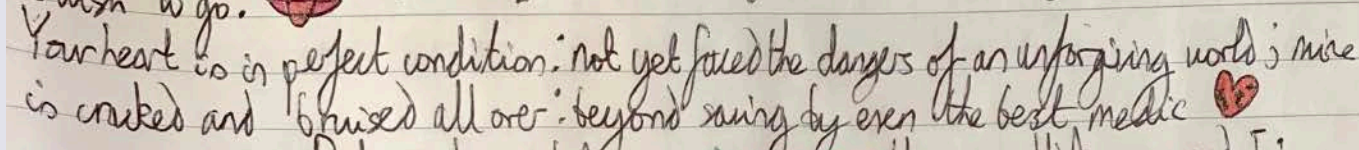 wish to go.
Your heart is in perfect condition: not yet faced the dangers of an unforgiving world; mine
is cracked and bruised all over: beyond saving by even the best medic